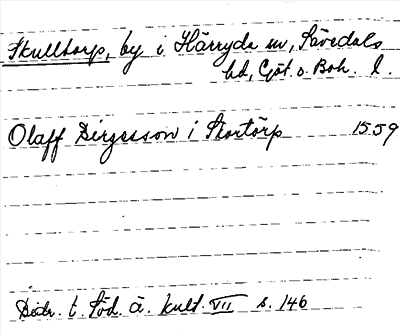 Skulltorp, by i Härryda sn, Sävedals
hd, Göt. o. Boh. l.
Olaff Birgesson i Skortörp 1559
Bidr. t. Söd. ä. kult. VII s. 146